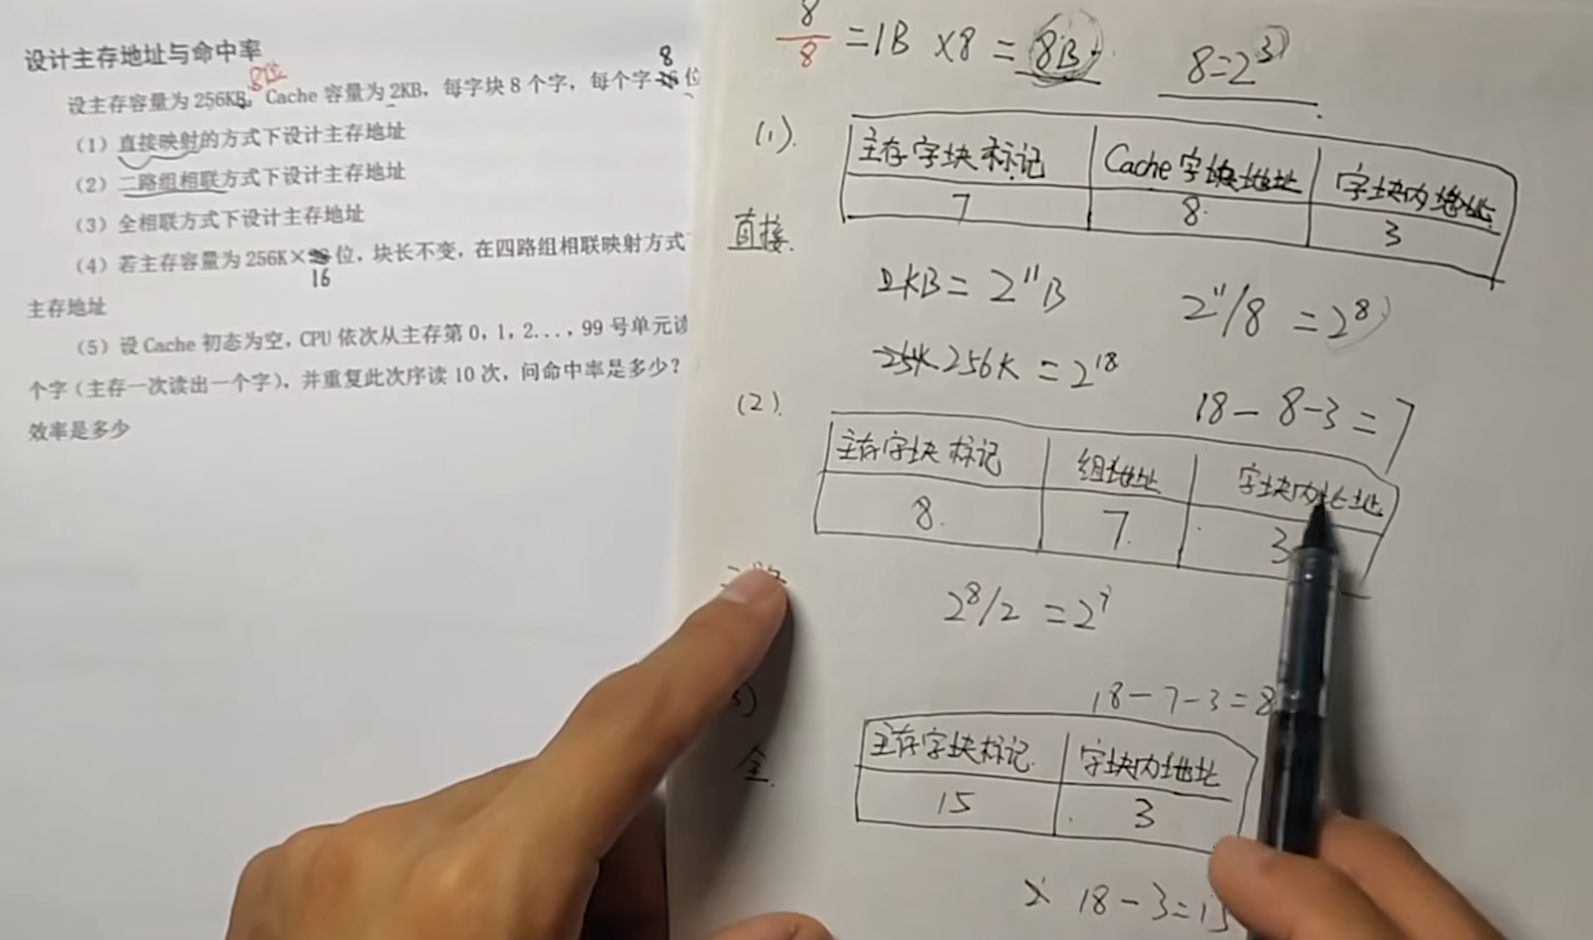 设计主存地址与命中率
8位
8
设主存容量为 256KB, Cache 容量为 2KB, 每字块 8 个字, 每个字 位
(1) 直接映射的方式下设计主存地址
(2) 二路组相联方式下设计主存地址
(3) 全相联方式下设计主存地址
(4) 若主存容量为 256K× 位, 块长不变, 在四路组相联映射方式
16
主存地址
(5) 设 Cache 初态为空, CPU 依次从主存第 0, 1, 2..., 99 号单元读
个字 (主存一次读出一个字), 并重复此次序读 10 次, 问命中率是多少?
效率是多少
8/8 = 1B ×8 = 8B 8=2^3
(1).
主存字块标记 Cache 字块地址 字块内地址
7 8 3
直接.
2KB = 2^11 B 2^11/8 = 2^8
256K = 2^18
18-8-3=7
(2).
主存字块标记 组地址 字块内地址
8 7 3
2^8/2 = 2^7
18-7-3=8
3)
全.
主存字块标记 字块内地址
15 3
18-3=15